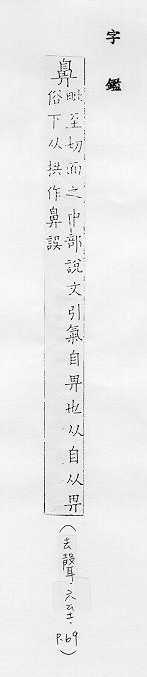 字鑑
鼻
毗至切面之中部說文引氣自畀也从自从畀
俗下从拱作鼻誤
(去聲.六至. P.69)